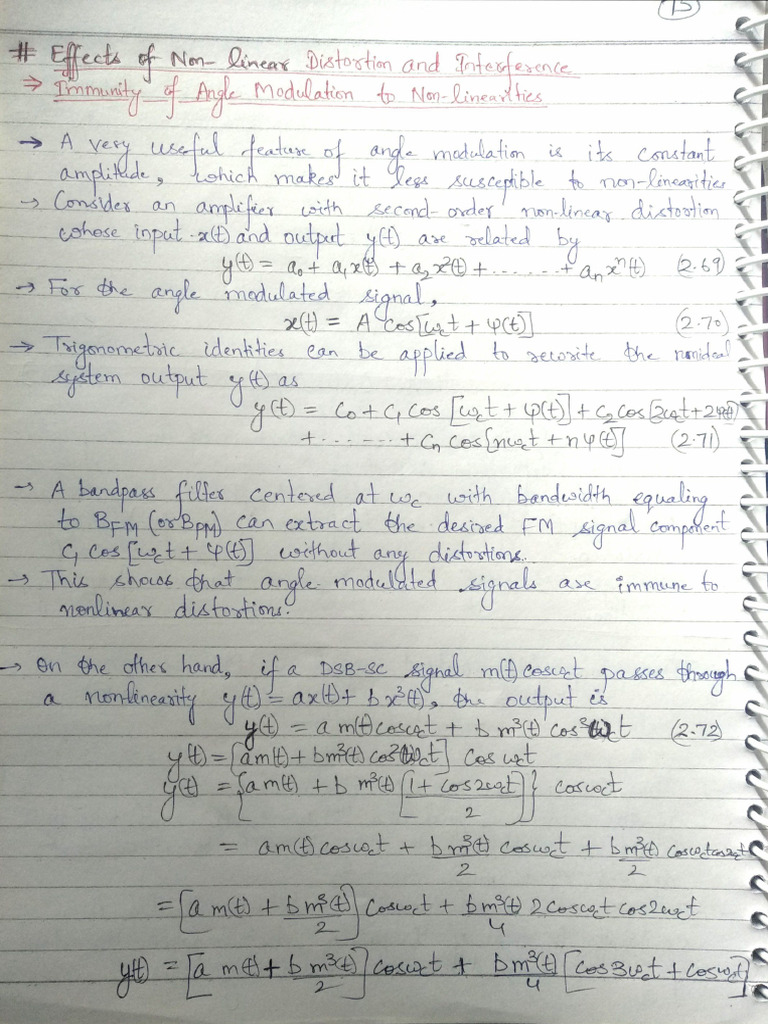 15
# Effects of Non-linear Distortion and Interference
→ Immunity of Angle Modulation to Non-linearities
→ A very useful feature of angle modulation is its constant
amplitude, which makes it less susceptible to non-linearities
→ Consider an amplifier with second-order non-linear distortion
whose input x(t) and output y(t) are related by
y(t) = a₀ + a₁x(t) + a₂x²(t) + ....... + aₙxⁿ(t) (2.69)
→ For the angle modulated signal,
x(t) = A cos[ω_c t + φ(t)] (2.70)
→ Trigonometric identities can be applied to rewrite the nonideal
system output y(t) as
y(t) = C₀ + C₁ cos [ω_c t + φ(t)] + C₂ cos [2ω_c t + 2φ(t)]
+ ....... + Cₙ cos[nω_c t + nφ(t)] (2.71)
→ A bandpass filter centered at ω_c with bandwidth equaling
to B_FM (or B_PM) can extract the desired FM signal component
C₁ cos [ω_c t + φ(t)] without any distortions.
→ This shows that angle modulated signals are immune to
nonlinear distortions.
→ On the other hand, if a DSB-SC signal m(t) cosω_c t passes through
a nonlinearity y(t) = ax(t) + bx³(t), the output is
y(t) = a m(t) cosω_c t + b m³(t) cos³ω_c t (2.72)
y(t) = [am(t) + bm³(t) cos²ω_c t] cos ω_c t
y(t) = {a m(t) + b m³(t) [(1 + cos2ω_c t)/2]} cosω_c t
= am(t) cosω_c t + bm³(t)/2 cosω_c t + bm³(t)/2 cosω_c t cos2ω_c t
= [a m(t) + bm³(t)/2] cosω_c t + bm³(t)/4 2cosω_c t cos2ω_c t
y(t) = [a m(t) + b m³(t)/2] cosω_c t + bm³(t)/4 [cos3ω_c t + cosω_c t]